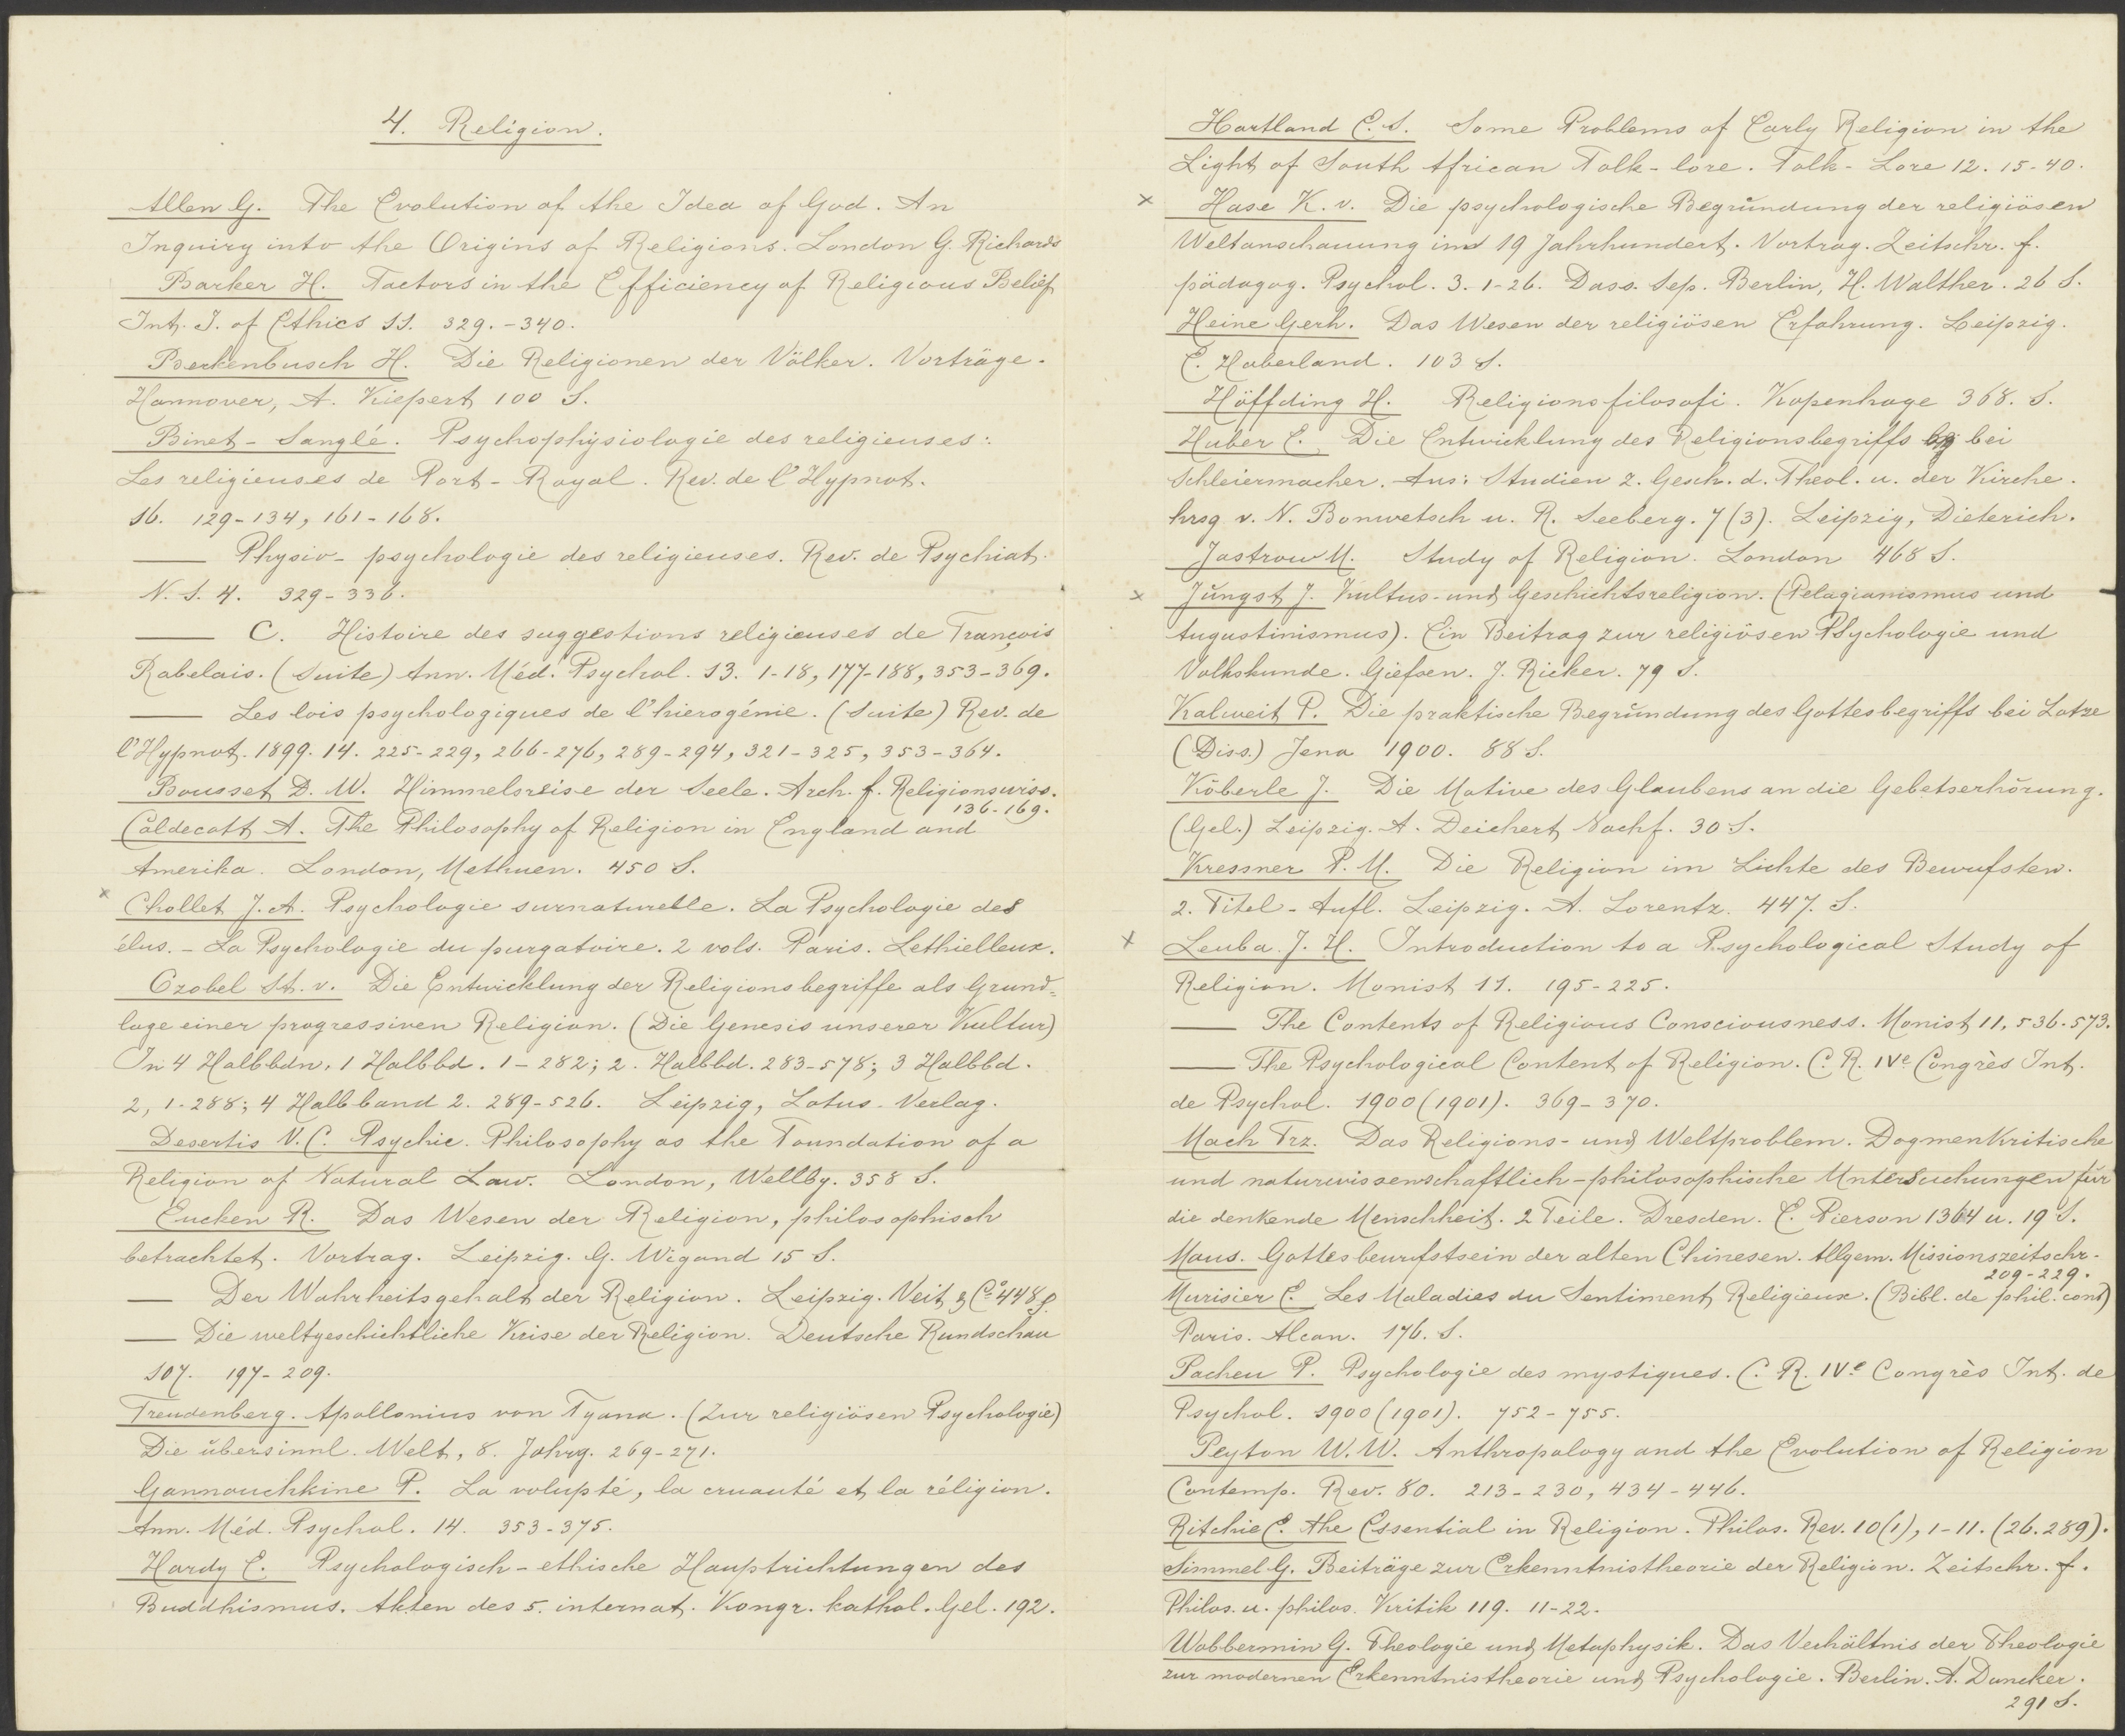 4. Religion.
Allen G. The Evolution of the Idea of God. An
Inquiry into the Origins of Religions. London G. Richards
Barker H. Factors in the Efficiency of Religious Belief
Int. J. of Ethics 11. 329.-340.
Beckenbusch H. Die Religionen der Völker. Vorträge.
Hannover, A. Kiepert 100 S.
Binet-Sanglé. Psychophysiologie des religieuses:
Les religieuses de Port-Royal. Rev. de l'Hypnot.
16. 129-134, 161-168.
— Physio-psychologie des religieuses. Rev. de Psychiat.
N. S. 4. 329-336.
— C. Histoire des suggestions religieuses de François
Rabelais. (Suite) Ann. Méd. Psychol. 13. 1-18, 177-188, 353-369.
— Les lois psychologiques de l'hierogénie. (Suite) Rev. de
l'Hypnot. 1899. 14. 225-229, 266-276, 289-294, 321-325, 353-364.
Bousset D. W. Himmelsreise der Seele. Arch. f. Religionswiss.
136-169.
Caldecott A. The Philosophy of Religion in England and
Amerika. London, Methuen. 450 S.
x Chollet J. A. Psychologie surnaturelle. La Psychologie des
élus. - La Psychologie du purgatoire. 2 vols. Paris. Lethielleux.
Czobel St. v. Die Entwicklung der Religionsbegriffe als Grund=
lage einer progressiven Religion. (Die Genesis unserer Kultur)
In 4 Halbbdn, 1 Halbbd. 1-282; 2. Halbbd. 283-578; 3 Halbbd.
2, 1-288; 4 Halbband 2. 289-526. Leipzig, Lotus-Verlag.
Desertis V. C. Psychic. Philosophy as the Foundation of a
Religion of Natural Law. London, Wellby. 358 S.
Eucken R. Das Wesen der Religion, philosophisch
betrachtet. Vortrag. Leipzig. G. Wigand 15 S.
— Der Wahrheitsgehalt der Religion. Leipzig. Veit & Co. 448 S.
— Die weltgeschichtliche Krise der Religion. Deutsche Rundschau
107. 197-209.
Freudenberg. Apollonius von Tyana. (Zur religiösen Psychologie)
Die übersinnl. Welt, 8. Jahrg. 269-271.
Gannouchkine P. La volupté, la cruauté et la réligion.
Ann. Méd. Psychol. 14. 353-375.
Hardy E. Psychologisch-ethische Hauptrichtungen des
Buddhismus. Akten des 5. internat. Kongr. kathol. Gel. 192.
Hartland E. S. Some Problems of Early Religion in the
Light of South African Folk-lore. Folk-Lore 12. 15-40.
x Hase K. v. Die psychologische Begründung der religiösen
Weltanschauung im 19 Jahrhundert. Vortrag. Zeitschr. f.
pädagog. Psychol. 3. 1-26. Dass. Sep. Berlin, H. Walther. 26 S.
Heine Gerh. Das Wesen der religiösen Erfahrung. Leipzig.
E. Haberland. 103 S.
Höffding H. Religionsfilosofi. Kopenhage 368. S.
Huber E. Die Entwicklung des Religionsbegriffs bei
Schleiermacher. Aus: Studien z. Gesch. d. Theol. u. der Kirche.
hrsg v. N. Bonwetsch u. R. Seeberg. 7(3). Leipzig, Dieterich.
Jastrow M. Study of Religion. London 468 S.
x Jüngst J. Kultus- und Geschichtsreligion. (Pelagianismus und
Augustinismus). Ein Beitrag zur religiösen Psychologie und
Volkskunde. Giefsen. J. Ricker. 79 S.
Kalweit P. Die praktische Begründung des Gottesbegriffs bei Lotze
(Diss.) Jena 1900. 88 S.
Köberle J. Die Motive des Glaubens an die Gebetserhörung.
(Gel.) Leipzig. A. Deichert Nachf. 30 S.
Kressner P. M. Die Religion im Lichte des Bewufsten.
2. Titel-Aufl. Leipzig. A. Lorentz. 447. S.
x Leuba J. H. Introduction to a Psychological Study of
Religion. Monist 11. 195-225.
— The Contents of Religious Consciousness. Monist 11, 536-573.
— The Psychological Content of Religion. C. R. IVe Congrès Int.
de Psychol. 1900 (1901). 369-370.
Mach Frz. Das Religions- und Weltproblem. Dogmenkritische
und naturwissenschaftlich-philosophische Untersuchungen für
die denkende Menschheit. 2 Teile. Dresden. E. Pierson 1364 u. 19 S.
Maus. Gottesbewufstsein der alten Chinesen. Allgem. Missionszeitschr.
209-229.
Murisier E. Les Maladies du Sentiment Religieux. (Bibl. de phil. cont)
Paris. Alcan. 176. S.
Pacheu P. Psychologie des mystiques. C. R. IVe Congrès Int. de
Psychol. 1900 (1901). 752-755.
Peyton W. W. Anthropology and the Evolution of Religion
Contemp. Rev. 80. 213-230, 434-446.
Ritchie E. the Essential in Religion. Philos. Rev. 10(1), 1-11. (26.289).
Simmel G. Beiträge zur Erkenntnistheorie der Religion. Zeitschr. f.
Philos. u. philos. Kritik 119. 11-22.
Wobbermin G. Theologie und Metaphysik. Das Verhältnis der Theologie
zur modernen Erkenntnistheorie und Psychologie. Berlin. A. Duncker.
291 S.